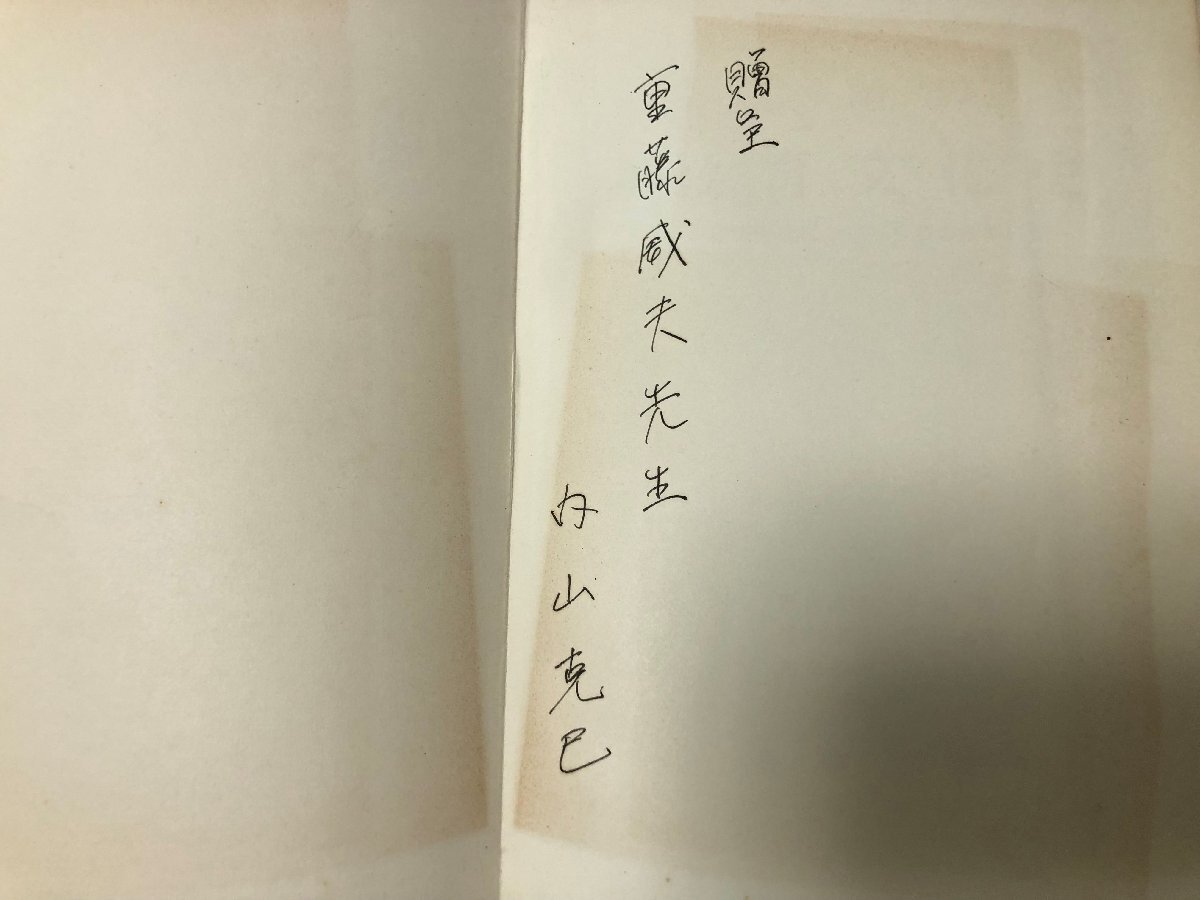 贈呈
重藤威夫先生
内山克巳